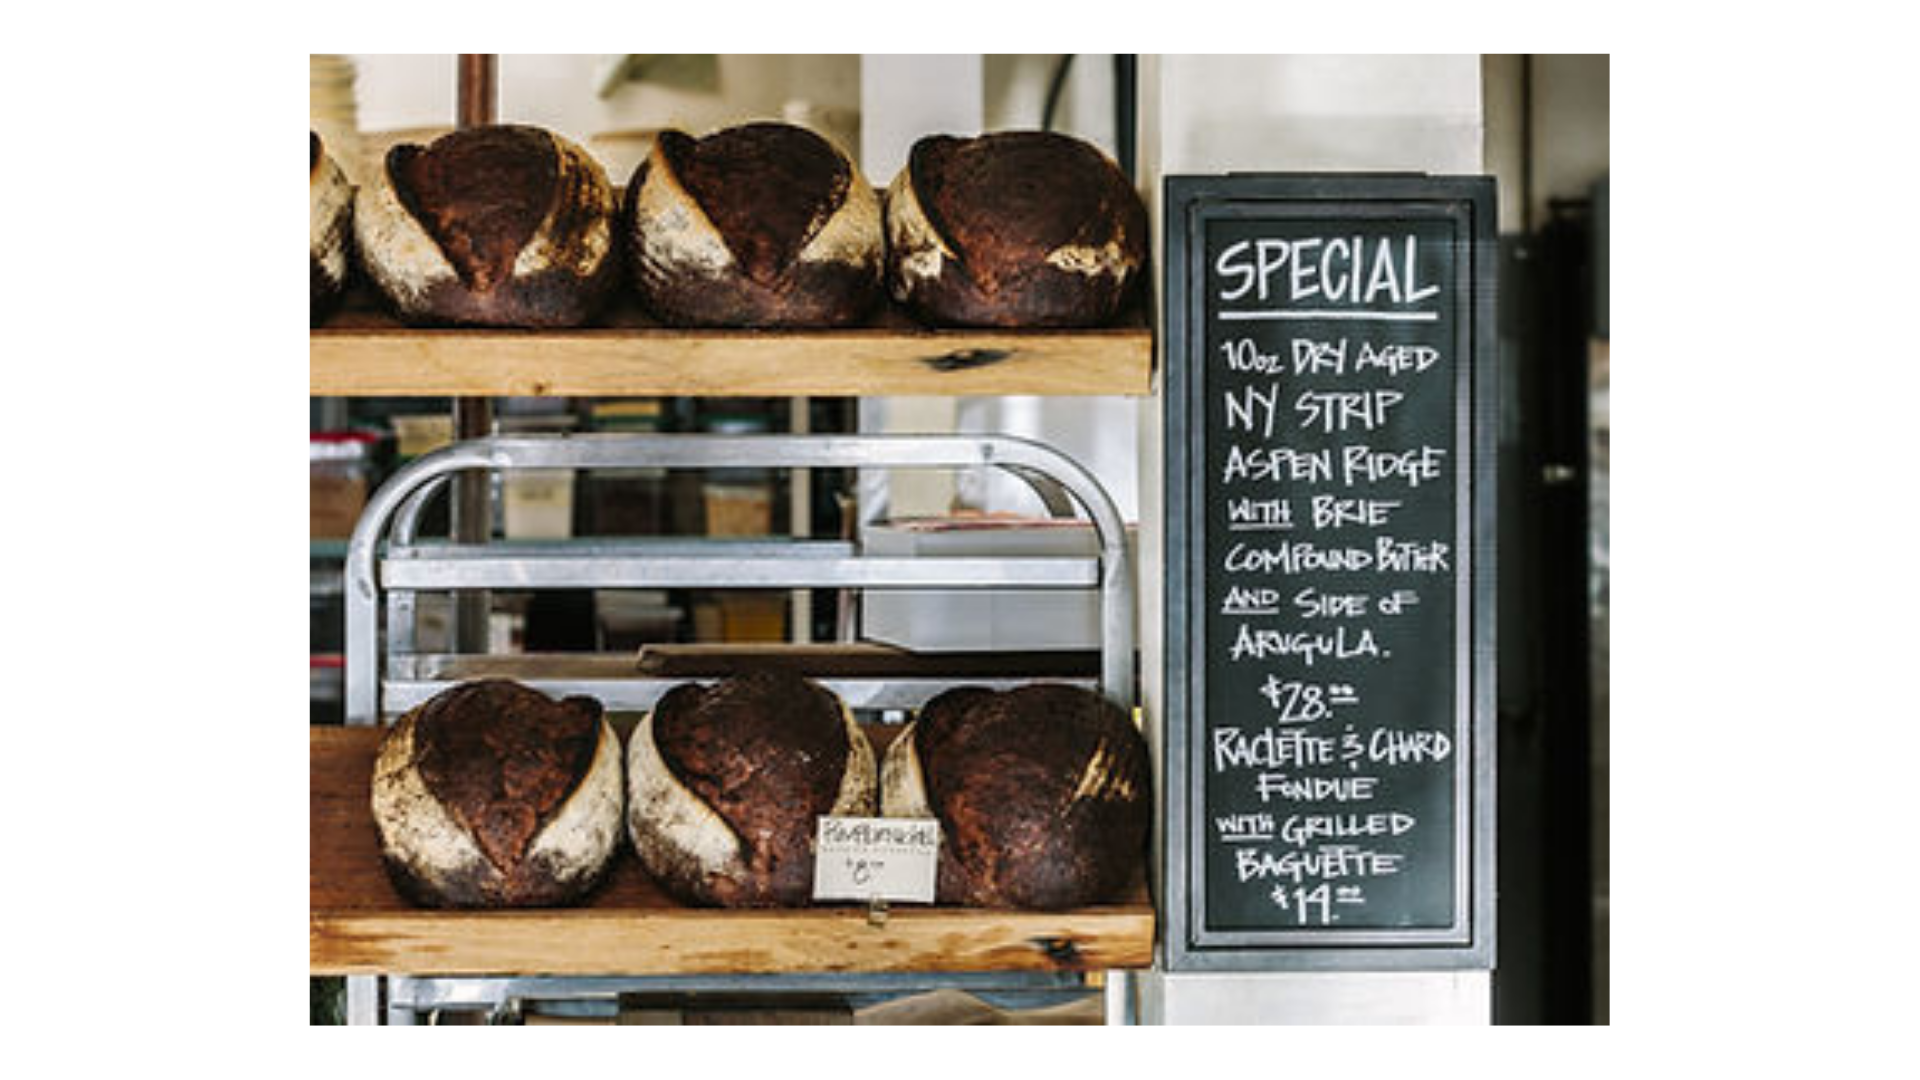 SPECIAL
10oz DRY AGED
NY STRIP
ASPEN RIDGE
WITH BRIE
COMPOUND BUTTER
AND SIDE OF
ARUGULA.
$28.00
RACLETTE & CHARD
FONDUE
WITH GRILLED
BAGUETTE
$14.00
PUMPERNICKEL
$8.00